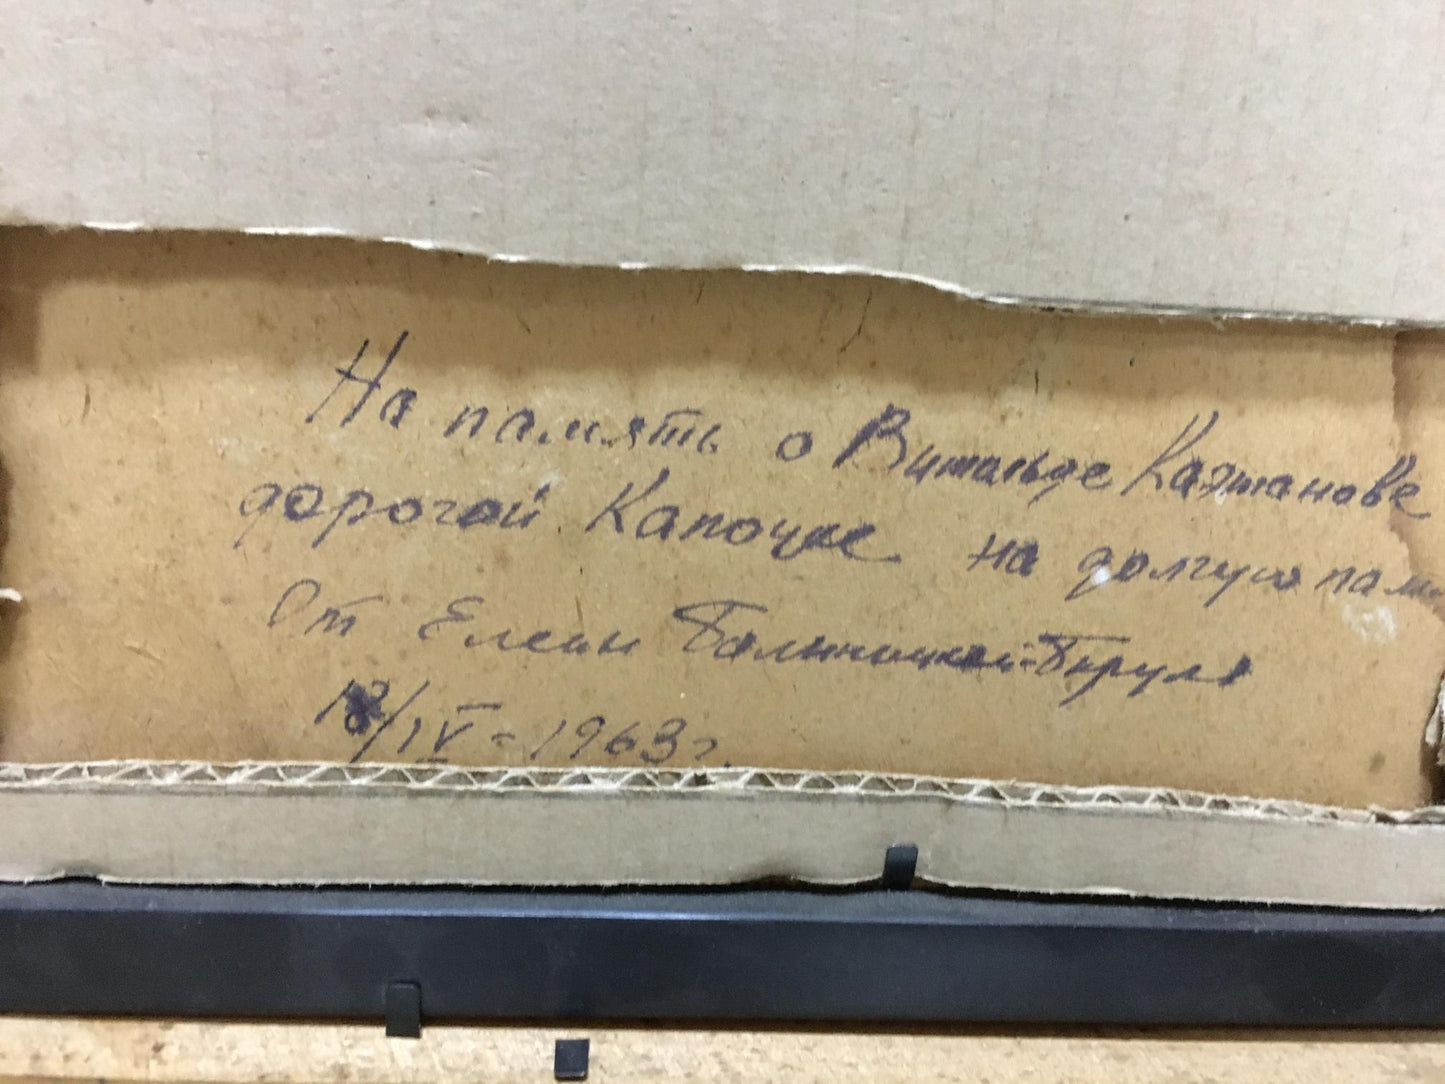 На память о Витальде Каэтанове
дорогой Капочке на долгую пам
От Елены Бялыницкой-Бируля
18/IV - 1963 г.